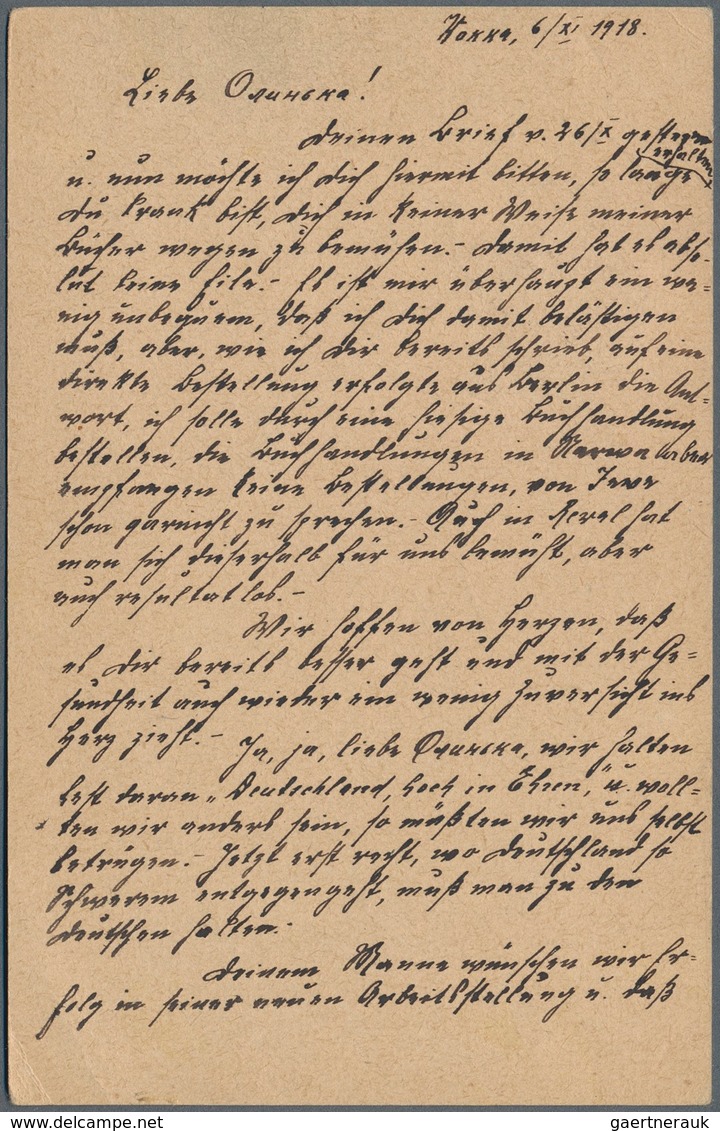 Kokka, 6/XI 1918.
Liebe Олинька!
Deinen Brief v. 26/X gestern
erhalten
u. nun möchte ich Dich hiermit bitten, so lange
Du krank bist, Dich in keiner Weise meiner
Bücher wegen zu bemühen.- Damit hat es abso-
lut keine Eile.- Es ist mir überhaupt ein we-
nig unbequem, daß ich Dich damit belästigen
muß, aber, wie ich Dir bereits schrieb, auf eine
direkte Bestellung erfolgte aus Berlin die Ant-
wort, ich solle durch eine hiesige Buchhandlung
bestellen, die Buchhandlungen in Narwa aber
empfangen keine Bestellungen, von Jewe
schon garnicht zu sprechen.- Auch in Reval hat
man sich dieserhalb für uns bemüht, aber
auch resultatlos.-
Wir hoffen von Herzen, daß
es Dir bereits besser geht und mit der Ge-
sundheit auch wieder ein wenig Zuversicht ins
Herz zieht.- Ja, ja, liebe Олинька, wir halten
fest daran „Deutschland, hoch in Ehren," u. woll-
ten wir anders sein, so müßten wir uns selbst
betrügen.- Jetzt erst recht, wo Deutschland so
Schwerem entgegengeht, muß man zu den
Deutschen halten.-
Deinem Manne wünschen wir Er-
folg in seiner neuen Arbeitsstellung u. daß
gaertnerauk